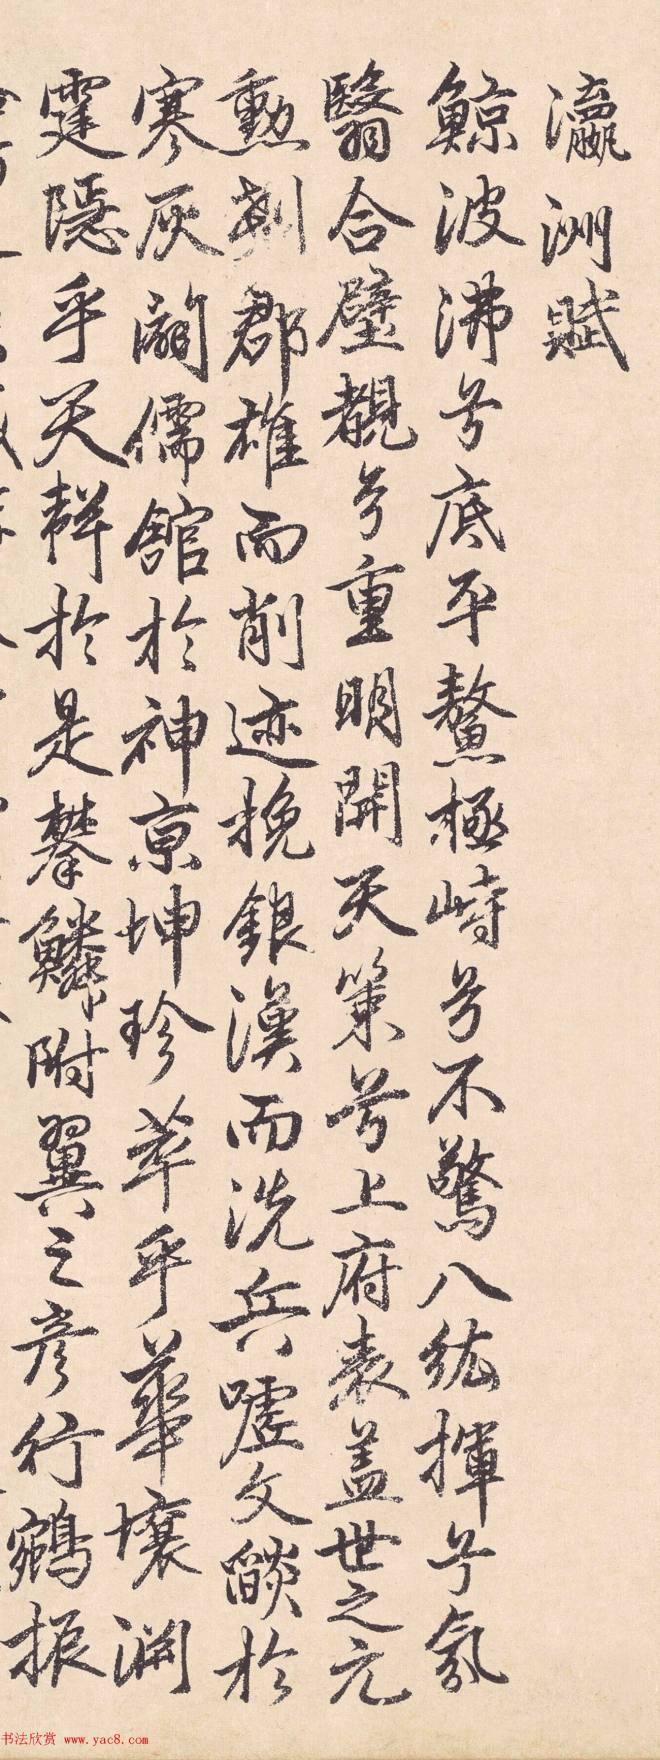 瀛洲賦
鯨波沸兮底平鼇極峙兮不驚八紘揮兮氛
翳合璧覩兮重明開天策兮上府表蓋世之元
勳剗群雄而削迹挽銀漢而洗兵噓文燄於
寒灰闢儒館於神京坤珍萃乎華壤淵
霆隱乎天聲於是攀鱗附翼之彥行鵷振
书法欣赏 www.yac8.com